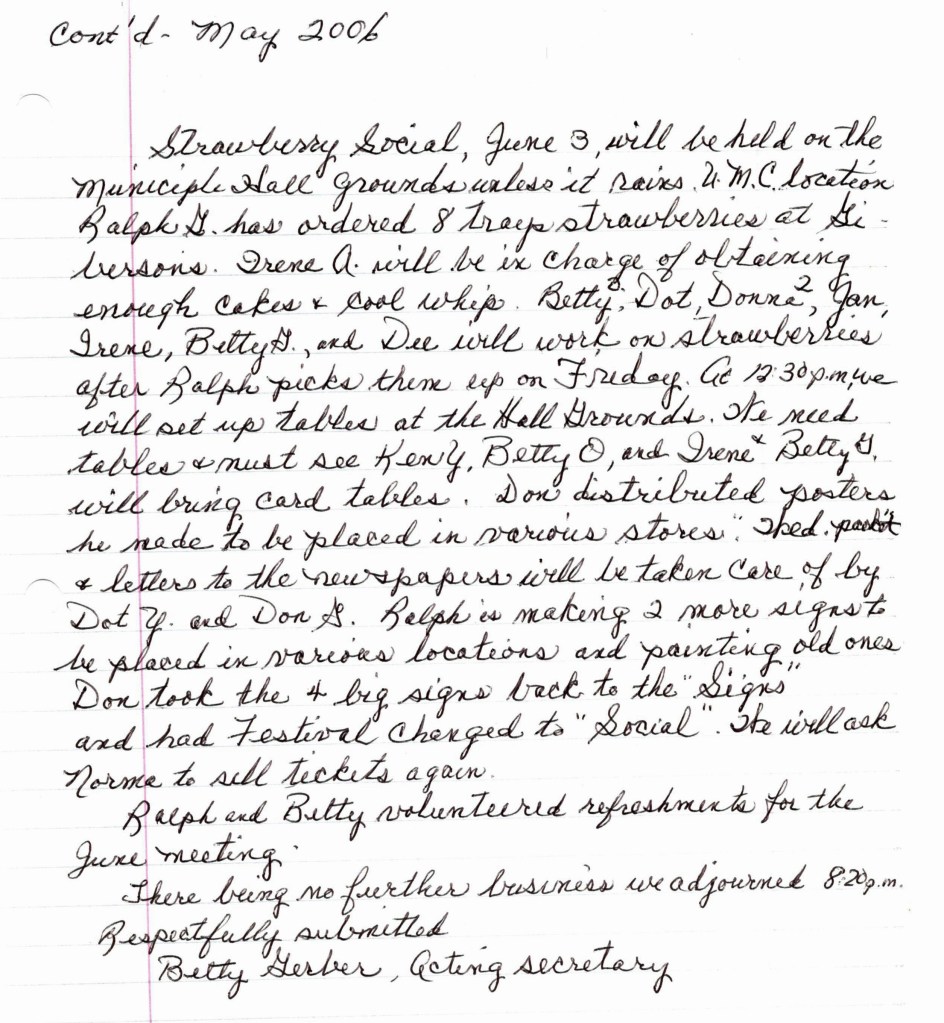 Cont'd - May 2006
Strawberry Social, June 3, will be held on the
Municiple Hall Grounds unless it rains. U.M.C. location
Ralph G. has ordered 8 trays strawberries at Gi-
bersons. Irene A. will be in charge of obtaining
enough cakes & cool whip. Betty, Dot, Donna2, Jan,
Irene, Betty G., and Dee will work on strawberries
after Ralph picks them up on Friday. At 12:30 p.m, we
will set up tables at the Hall Grounds. We need
tables & must see Ken Y, Betty O, and Irene & Betty G.
will bring card tables. Don distributed posters
he made to be placed in various stores.
& letters to the newspapers will be taken care of by
Dot Y. and Don G. Ralph is making 2 more signs to
be placed in various locations and painting old ones
Don took the 4 big signs back to the "Signs"
and had Festival changed to "Social". He will ask
Norma to sell tickets again.
Ralph and Betty volunteered refreshments for the
June meeting.
There being no further business we adjourned 8:20 p.m.
Respectfully submitted
Betty Gerber, Acting secretary